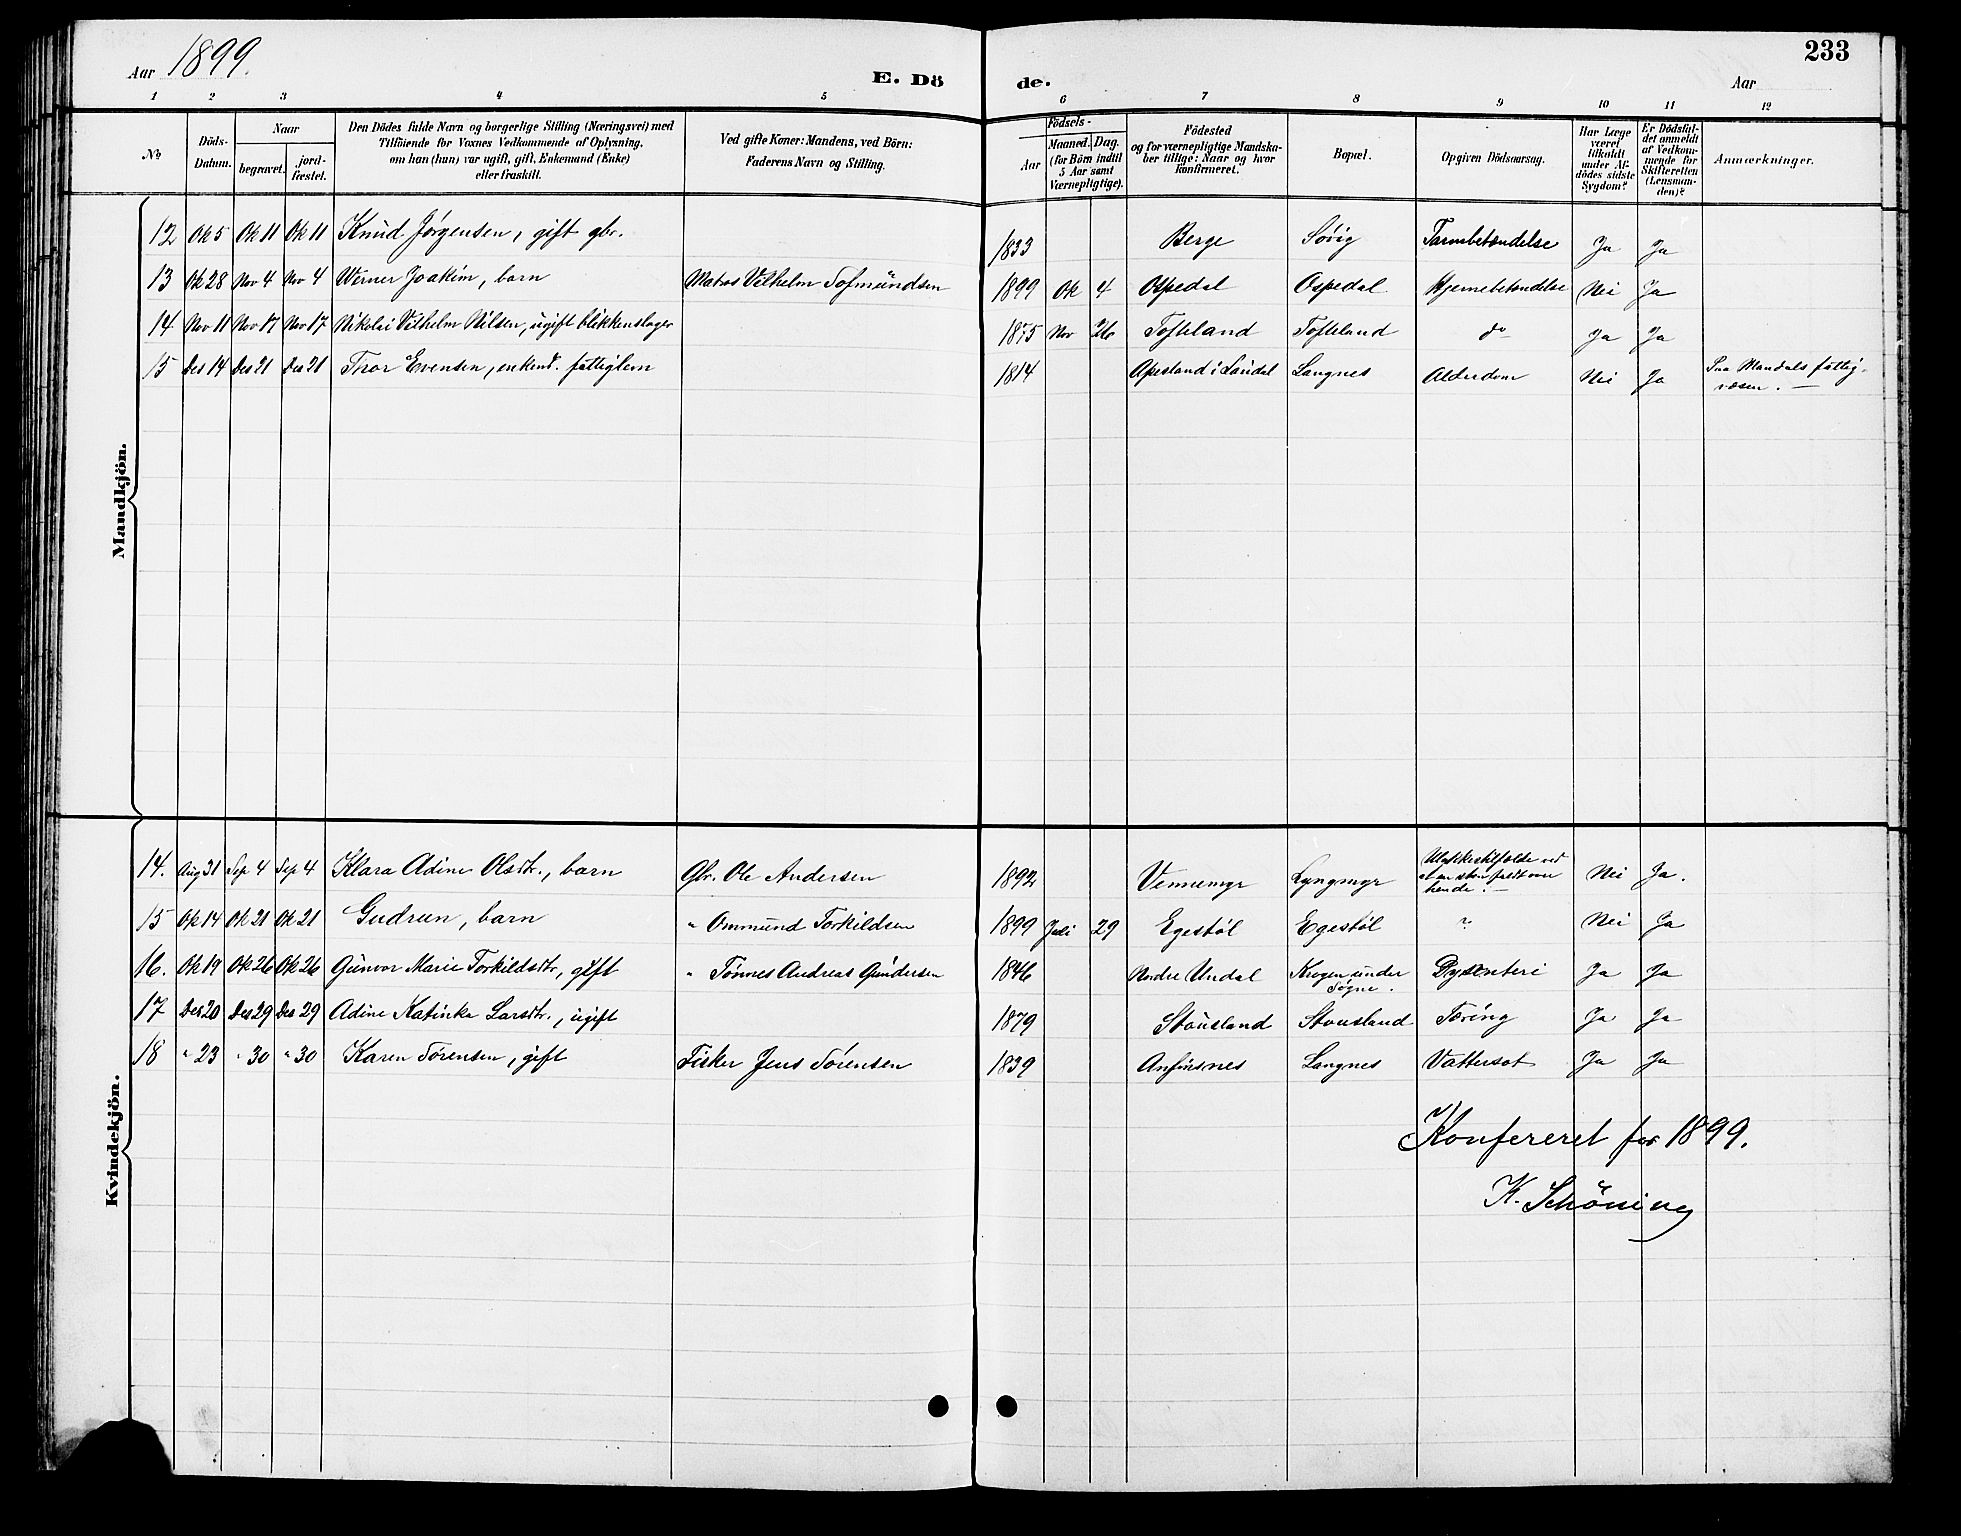 Aar 1899.
E. Dö
de.
Aar
233
1 2 3 4 5 6 7 8 9 10 11 12
No
Döds-Datum.
Naar
begravet.
jordfæstet.
Den Dödes fulde Navn og borgerlige Stilling (Næringsvei) med
Tilföiende for Voxnes Vedkommende af Oplysning,
om han (hun) var ugift, gift, Enkemand (Enke)
eller fraskilt.
Ved gifte Koner: Mandens, ved Börn:
Faderens Navn og Stilling.
Födsels-
Aar
Maaned. Dag.
(for Börn indtil
5 Aar samt
Værnepligtige).
Födested
og for værnepligtige Mandska-
ber tillige: Naar og hvor
konfirmeret.
Bopæl.
Opgiven Dödsaarsag.
Har Læge
været
tilkaldt
under Af-
dödes sidste
Sygdom?
Er Dödsfal-
det anmeldt
af Vedkom-
mende for
Skifteretten
(Lensman-
den)?
Anmærkninger.
Mandkjön.
12 Ok 5 Ok 11 Ok 11 Knud Jørgensen, gift gbr. 1833 Berge Søvig Tarmbetændelse Ja Ja
13 Ok 28 Nov 4 Nov 4 Werner Joakim, barn Matros Vilhelm Tofmundsen 1899 Ok 4 Ospedal Ospedal Hjernebetændelse Nei Ja
14 Nov 11 Nov 17 Nov 17 Nikolai Vilhelm Nilsen, ugift blikkenslager 1875 Nov 26 Tofteland Tofteland do Ja Ja
15 Des 14 Des 21 Des 21 Thor Evensen, enkemd. fattiglem 1814 Apesland i Laudal Langnes Alderdom Nei Ja Paa Mandals fattig-
væsen. —
Kvindekjön.
14. Aug 31 Sep 4 Sep 4 Klara Adine Olsdtr., barn Gbr. Ole Andersen 1892 Vennemyr Lyngmyr Ulykkestilfælde ved
at en sten faldt over
hende. — Nei Ja.
15 Ok 14 Ok 21 Ok 21 Gudrun, barn " Ommund Torkildsen 1899 Juli 29 Egestøl Egestøl ? Nei Ja
16. Ok 19 Ok 26 Ok 26 Gunvor Marie Torkildsdtr, gift " Tønnes Andreas Gundersen 1846 Nordre Undal Krogen under
Søgne. Dysenteri Ja Ja
17 Des 20 Des 29 Des 29 Adine Katinka Larsdtr., ugift 1879 Stousland Stousland Tæring Ja Ja
18 " 23 " 30 " 30 Karen Sørensen, gift Fisker Jens Sørensen 1839 Anfinsnes Langnes Vattersot Ja Ja
Konfereret for 1899.
K. Schöning